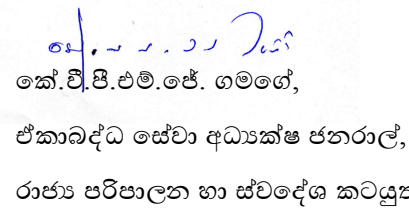 කේ.වී.පී.එම්.ජේ. ගමගේ,
ඒකාබද්ධ සේවා අධ්‍යක්ෂ ජනරාල්,
රාජ්‍ය පරිපාලන හා ස්වදේශ